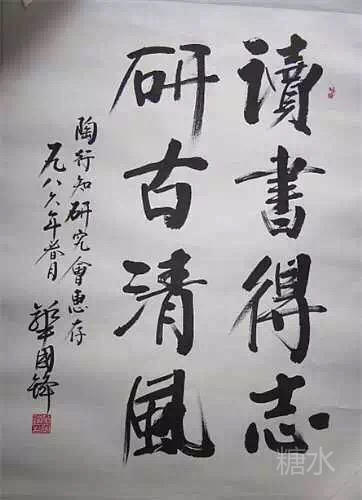 讀書得志
研古清風
陶行知研究會惠存
一九八六年春月
華國鋒
糖水